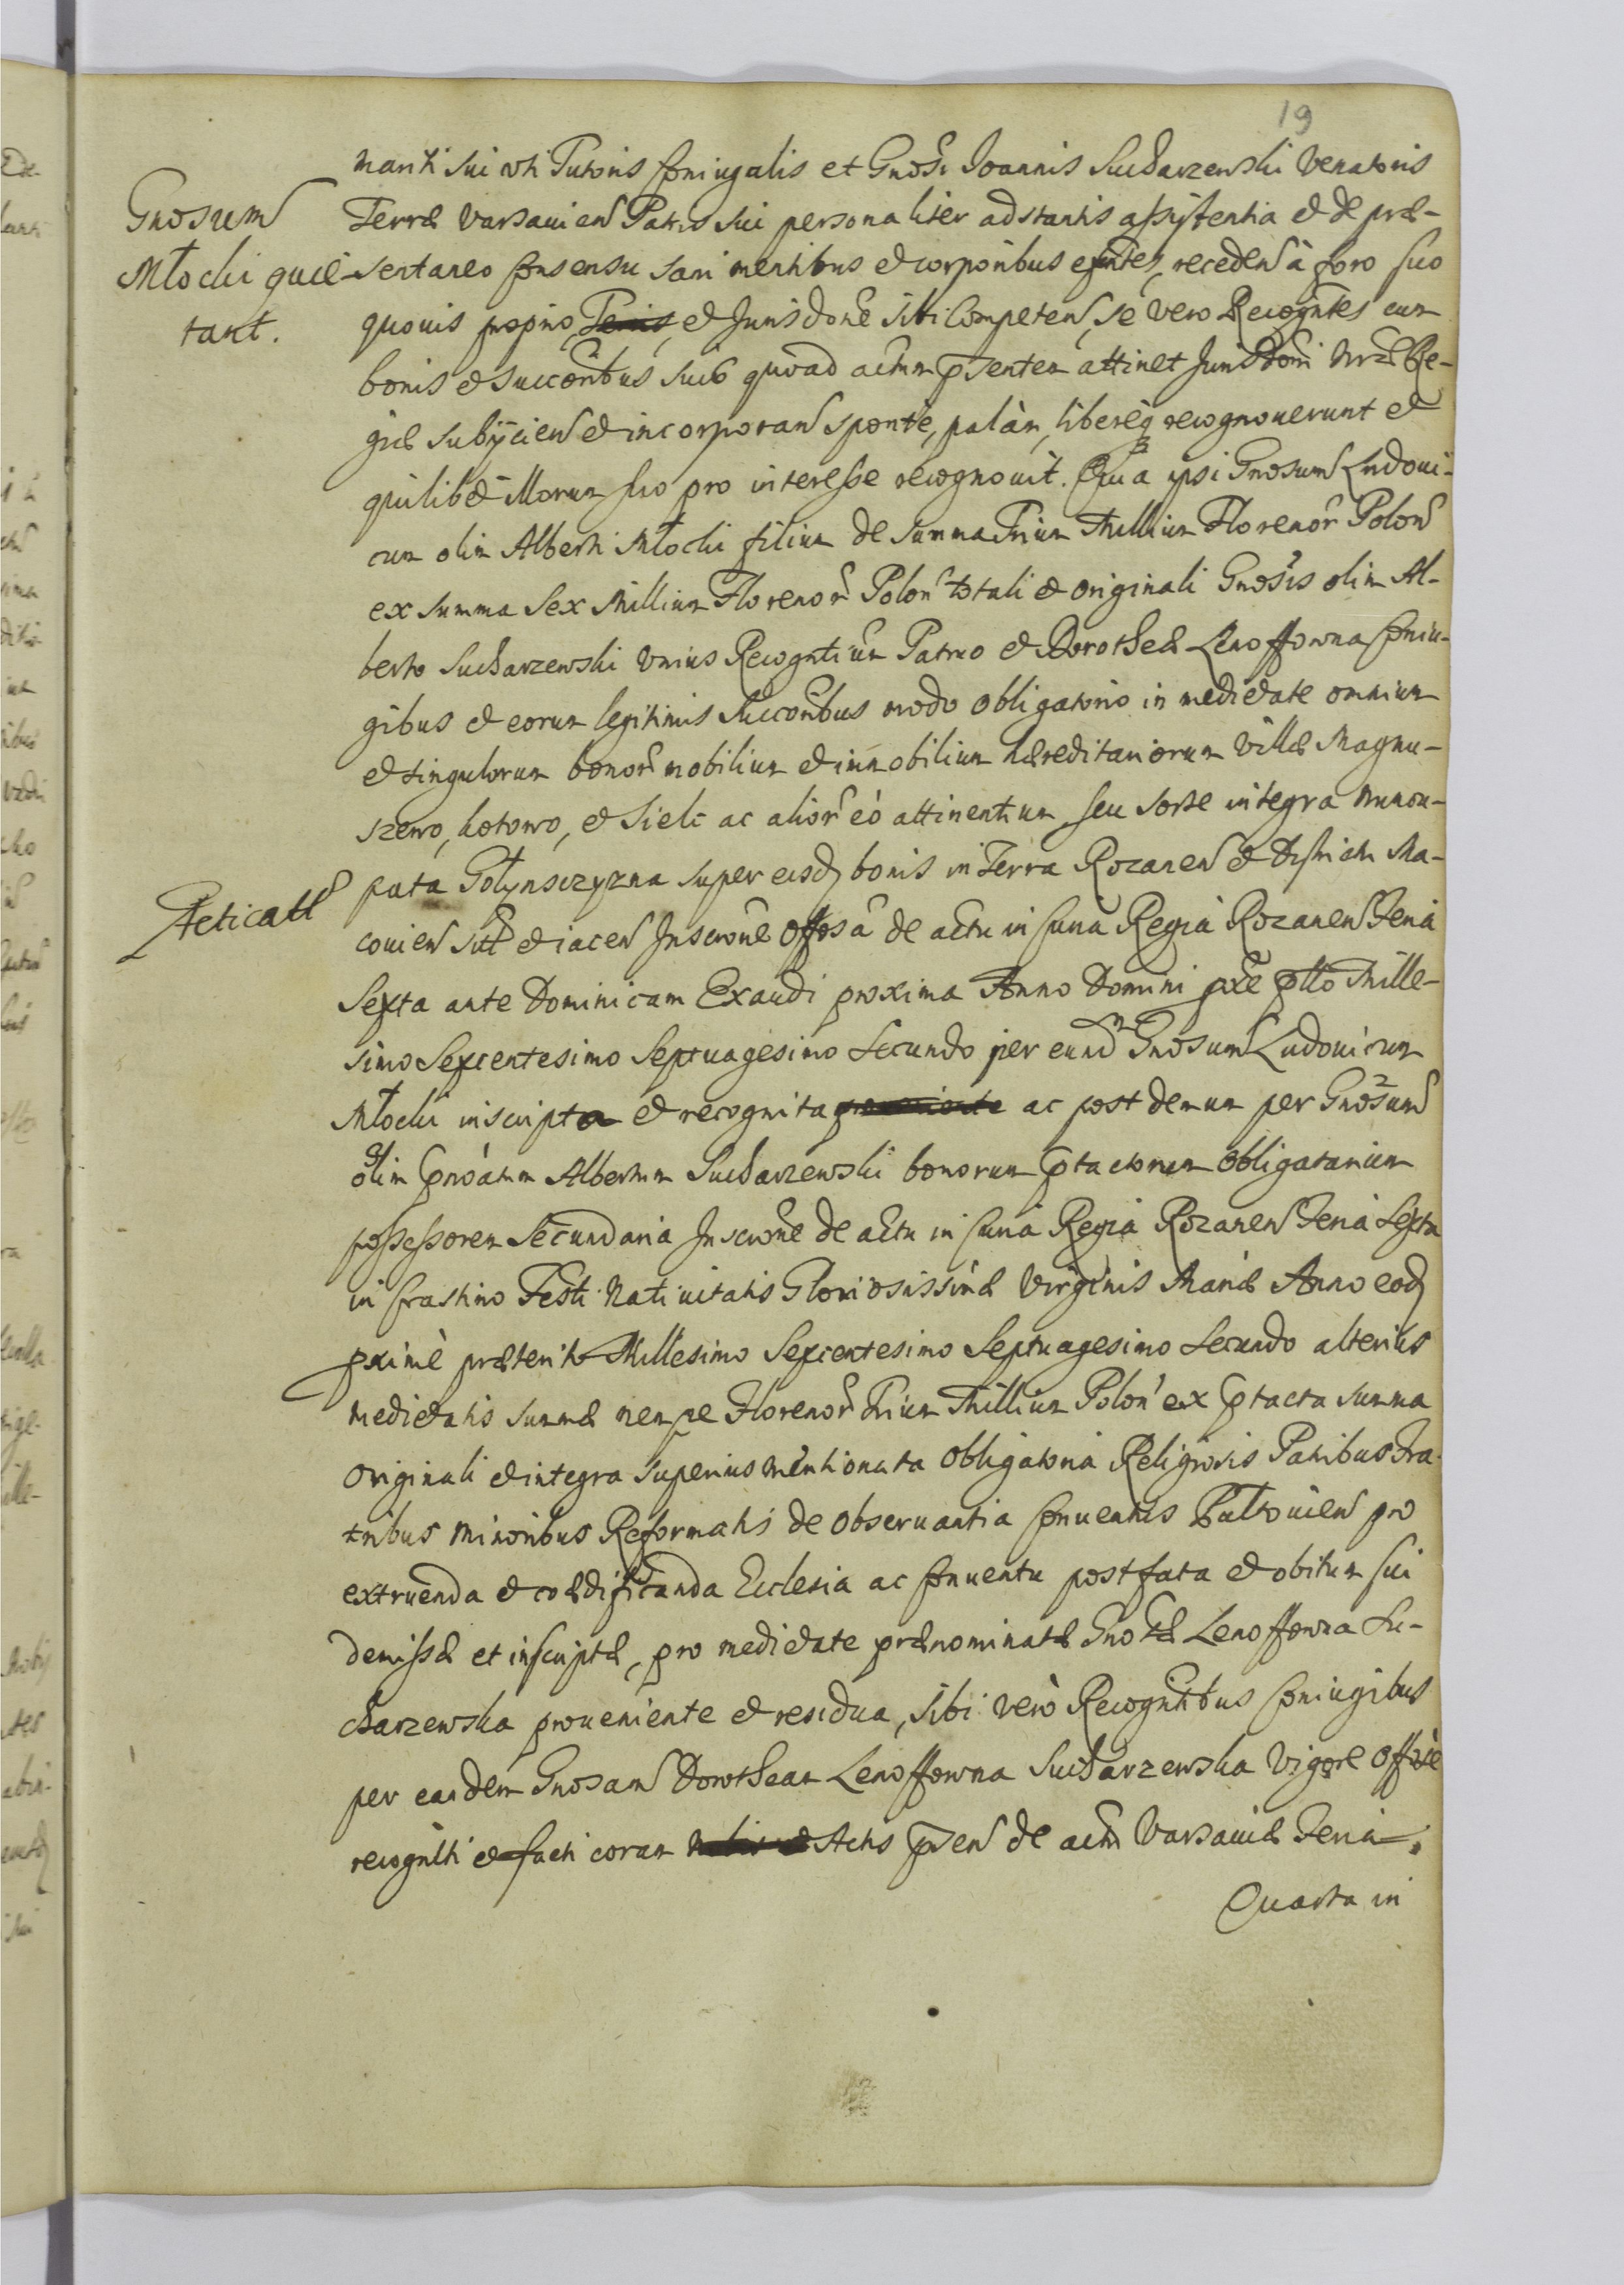 19
Gnosum
Młocki quie-
tant.
mariti sui uti Tutoris Coniugalis et Gnosi Joannis Sucharzewski Venatoris
Terræ Varsauien Patris sui personaliter adstantis assistentia et de præ-
sentaneo consensu sani mentibus et corporibus exntes, receden à foro suo
quouis proprio, et Jurisdone sibi Competen, se vero Recogntes cum
bonis et succoribus suis quoad actum pntem attinet Jurisdoni Nræ Re-
giæ subijcien et incorporan sponte, palàm, libereq recognouerunt et
quilibet illorum suo pro interesse recognouit. Quia ipsi Gnosum Ludoui-
cum olim Alberti Młocki filium de summa Trium Millium Florenor Polon
ex summa Sex Millium Florenor Polon totali et originali Gnosis olim Al-
berto Sucharzewski Unius Recogntium Patruo et Dorotheæ Lenoffowna Coniu-
gibus et eorum legitimis Succoribus modo obligatorio in medietate omnium
et singulorum bonor mobilium et immobilium hæreditariorum Villæ Magnu-
szewo, kotowo, et Sielc ac alior eò attinentium seu sorte integra nuncu-
pata Gołynsczyzna super eisd bonis in Terra Rozanen et Districtu Ma-
couien sitt et jacen Inscrone de actu in Curia Regia Rozanen Feria
Sexta ante Dominicam Exaudi proxima Anno Domini Mille-
simo Sexcentesimo Septuagesimo Secundo per eund Gnosum Ludouicum
Młocki inscripta et recognita ac post demum per Gnosum
olim Albertum Sucharzewski bonorum ptactorum Obligatarium
possessorem Secundaria Inscrone de actu in Curia Regia Rozanen Feria Sexta
in Crastino Festi Natiuitatis Gloriosissimæ Virginis Mariæ Anno eod
pximè præterito Millesimo Sexcentesimo Septuagesimo Secundo alterius
medietatis summæ nempe Florenor Trium Millium Polon ex ptacta summa
originali et integra superius mentionata Obligatoria Religiosis Patribus Fra-
tribus Minoribus Reformatis de Obseruantia Conuentus Pułtouien pro
extruenda et coædificanda Ecclesia ac Conuentu post fata et obitum sui
demissæ et inscriptæ, pro medietate prænominatæ Lenoffowna Su-
charzewska proueniente et residua, sibi vero Recogntibus Coniugibus
per eandem Gnosam Dorotheam Lenoffowna Sucharzewska Vigore
et facti coram Actis pnen de actu Varsauiæ Feria
Quarta in